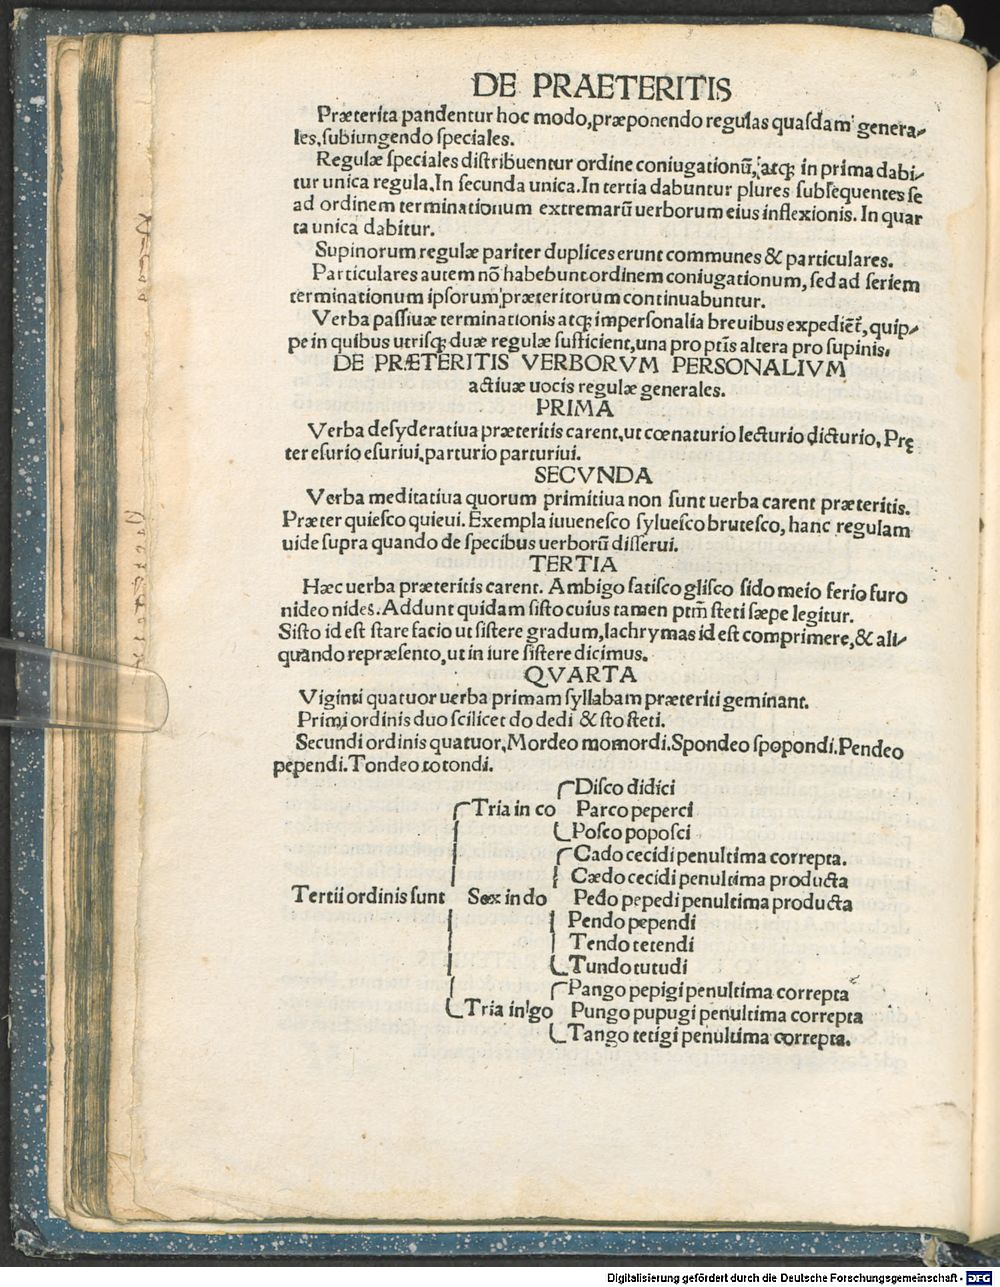 DE PRAETERITIS
Præterita pandentur hoc modo,præponendo regulas quaſdam genera-
les,ſubiungendo ſpeciales.
Regulæ ſpeciales diſtribuentur ordine coniugationū, atq; in prima dabi-
tur unica regula.In ſecunda unica.In tertia dabuntur plures ſubſequentes ſe
ad ordinem terminationum extremarū uerborum eius inflexionis. In quar
ta unica dabitur.
Supinorum regulæ pariter duplices erunt communes & particulares.
Particulares autem nō habebunt ordinem coniugationum, ſed ad ſeriem
terminationum ipſorum præteritorum continuabuntur.
Verba paſſiuæ terminationis atq; imperſonalia breuibus expediēt̄, quip-
pe in quibus utriſq; duæ regulæ ſufficient,una pro ptīs altera pro ſupinis.
DE PRÆTERITIS VERBORVM PERSONALIVM
actiuæ uocis regulæ generales.
PRIMA
Verba deſyderatiua præteritis carent,ut cœnaturio lecturio dicturio, Prę
ter eſurio eſuriui,parturio parturiui.
SECVNDA
Verba meditatiua quorum primitiua non ſunt uerba carent præteritis.
Præter quieſco quieui. Exempla iuueneſco ſylueſco bruteſco, hanc regulam
uide ſupra quando de ſpecibus uerborū diſſerui.
TERTIA
Hæc uerba præteritis carent. Ambigo fatiſco gliſco ſido meio ferio furo
nideo nides. Addunt quidam ſiſto cuius tamen ptm̄ ſteti ſæpe legitur.
Siſto id eſt ſtare facio ut ſiſtere gradum,lachrymas id eſt comprimere,& ali-
quando repræſento,ut in iure ſiſtere dicimus.
QVARTA
Viginti quatuor uerba primam ſyllabam præteriti geminant.
Primi ordinis duo ſcilicet do dedi & ſto ſteti.
Secundi ordinis quatuor,Mordeo momordi.Spondeo ſpopondi.Pendeo
pependi.Tondeo totondi.
Diſco didici
Tria in co Parco peperci
Poſco popoſci
Cado cecidi penultima correpta.
Cædo cecidi penultima producta
Tertii ordinis ſunt Sex in do Pedo pepedi penultima producta
Pendo pependi
Tendo tetendi
Tundo tutudi
Pango pepigi penultima correpta
Tria in go Pungo pupugi penultima correpta
Tango tetigi penultima correpta.
Digitalisierung gefördert durch die Deutsche Forschungsgemeinschaft - DFG